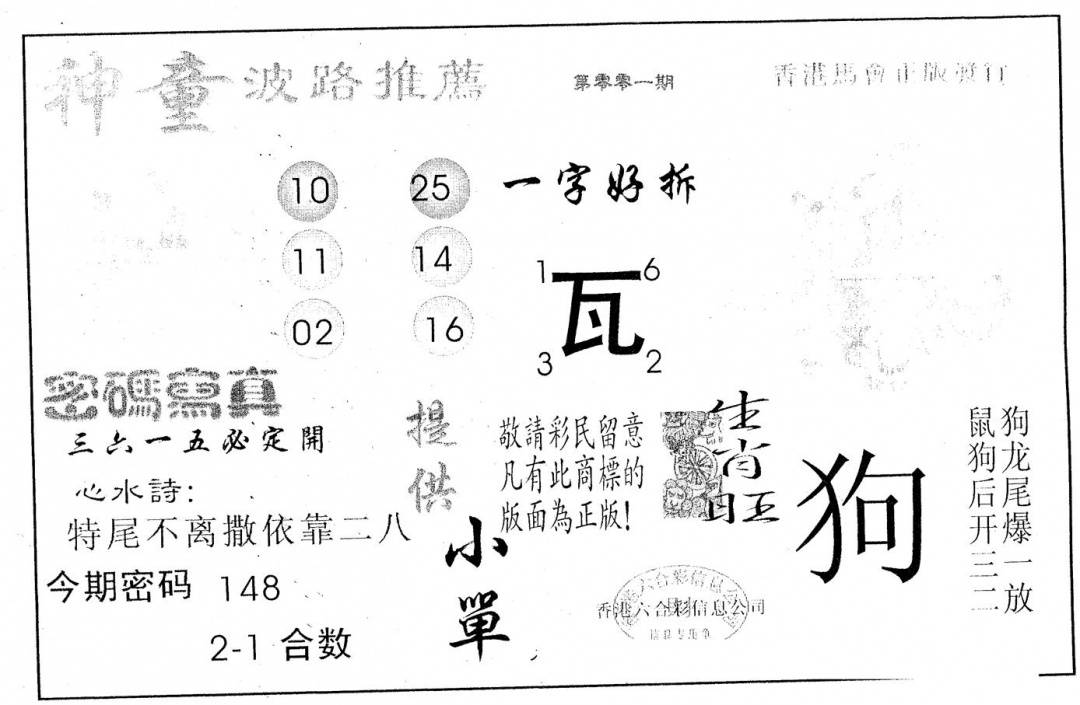 神童波路推薦
第零零一期
香港馬會正版發行
10 25
11 14
02 16
一字好拆
1 6
瓦
3 2
密碼寫真
三六一五必定開
心水詩:
特尾不离撒依靠二八
今期密码 148
2-1 合数
提供
小單
敬請彩民留意
凡有此商標的
版面為正版!
生肖旺
狗
狗龙尾爆一放
鼠狗后开三二
香港六合彩信息公司